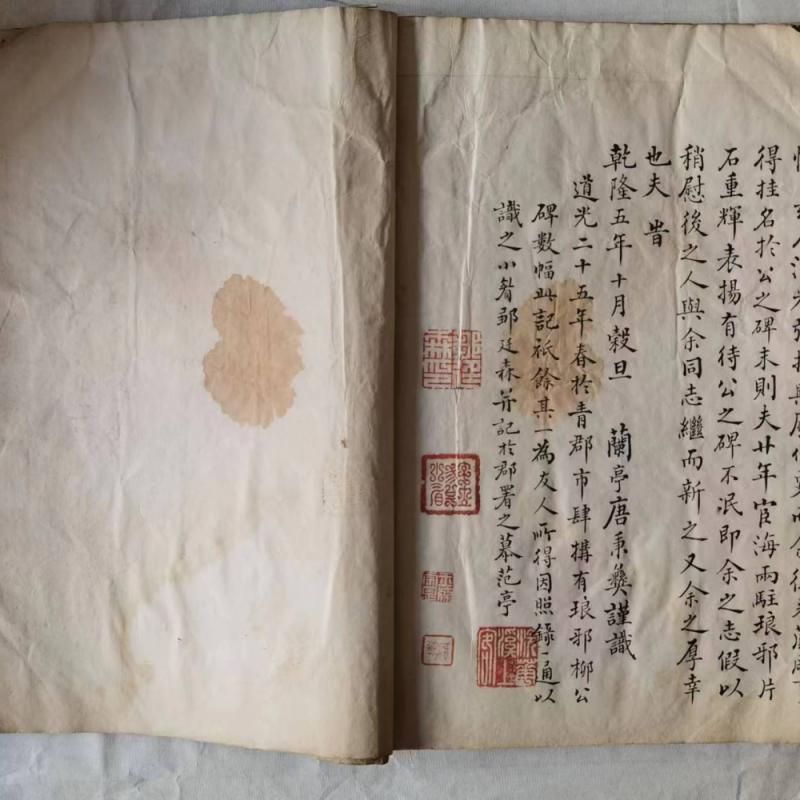 得挂名於公之碑末則夫廿年宦海兩駐琅邪片
石重輝表揚有待公之碑不泯即余之志假以
稍慰後之人與余同志繼而新之又余之厚幸
也夫 旹
乾隆五年十月榖旦 蘭亭唐秉彝謹識
道光二十五年春於青郡市肆搆有琅邪柳公
碑數幅此記祇餘其一為友人所得因照錄一通以
識之小眉鄒廷森并記於郡署之慕范亭